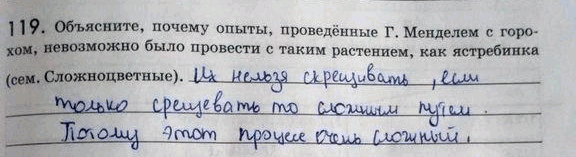 119. Объясните, почему опыты, проведённые Г. Менделем с горо-
хом, невозможно было провести с таким растением, как ястребинка
(сем. Сложноцветные). Их нельзя скрещивать, если
только срещевать то сложным путём.
Потому этот процесс очень сложный.